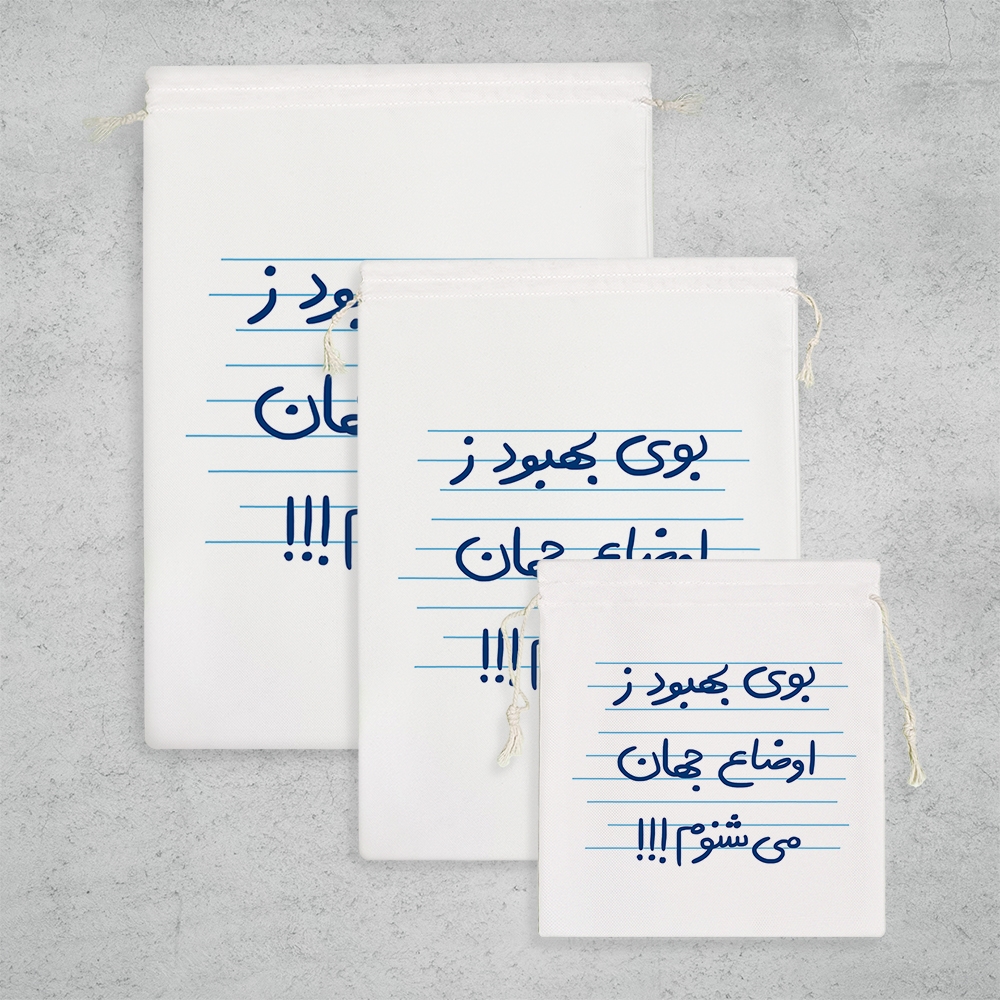 بود ز
هان
م!!!
بوی بهبود ز
اوضاع جهان
م!!!
بوی بهبود ز
اوضاع جهان
می شنوم!!!